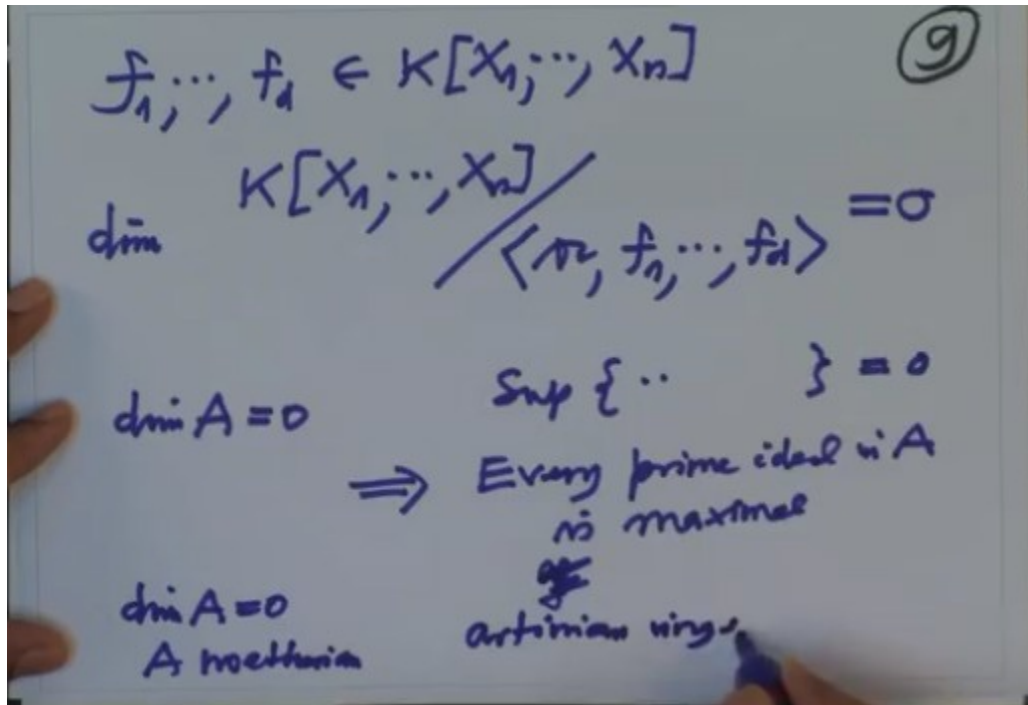 9
f₁, ..., f_d ∈ K[X₁, ..., Xₙ]
dim K[X₁, ..., Xₙ] / ⟨𝔞, f₁, ..., f_d⟩ = 0
dim A = 0
Sup { .. } = 0
⟹ Every prime ideal in A
is maximal
dim A = 0
A noetherian
artinian rings